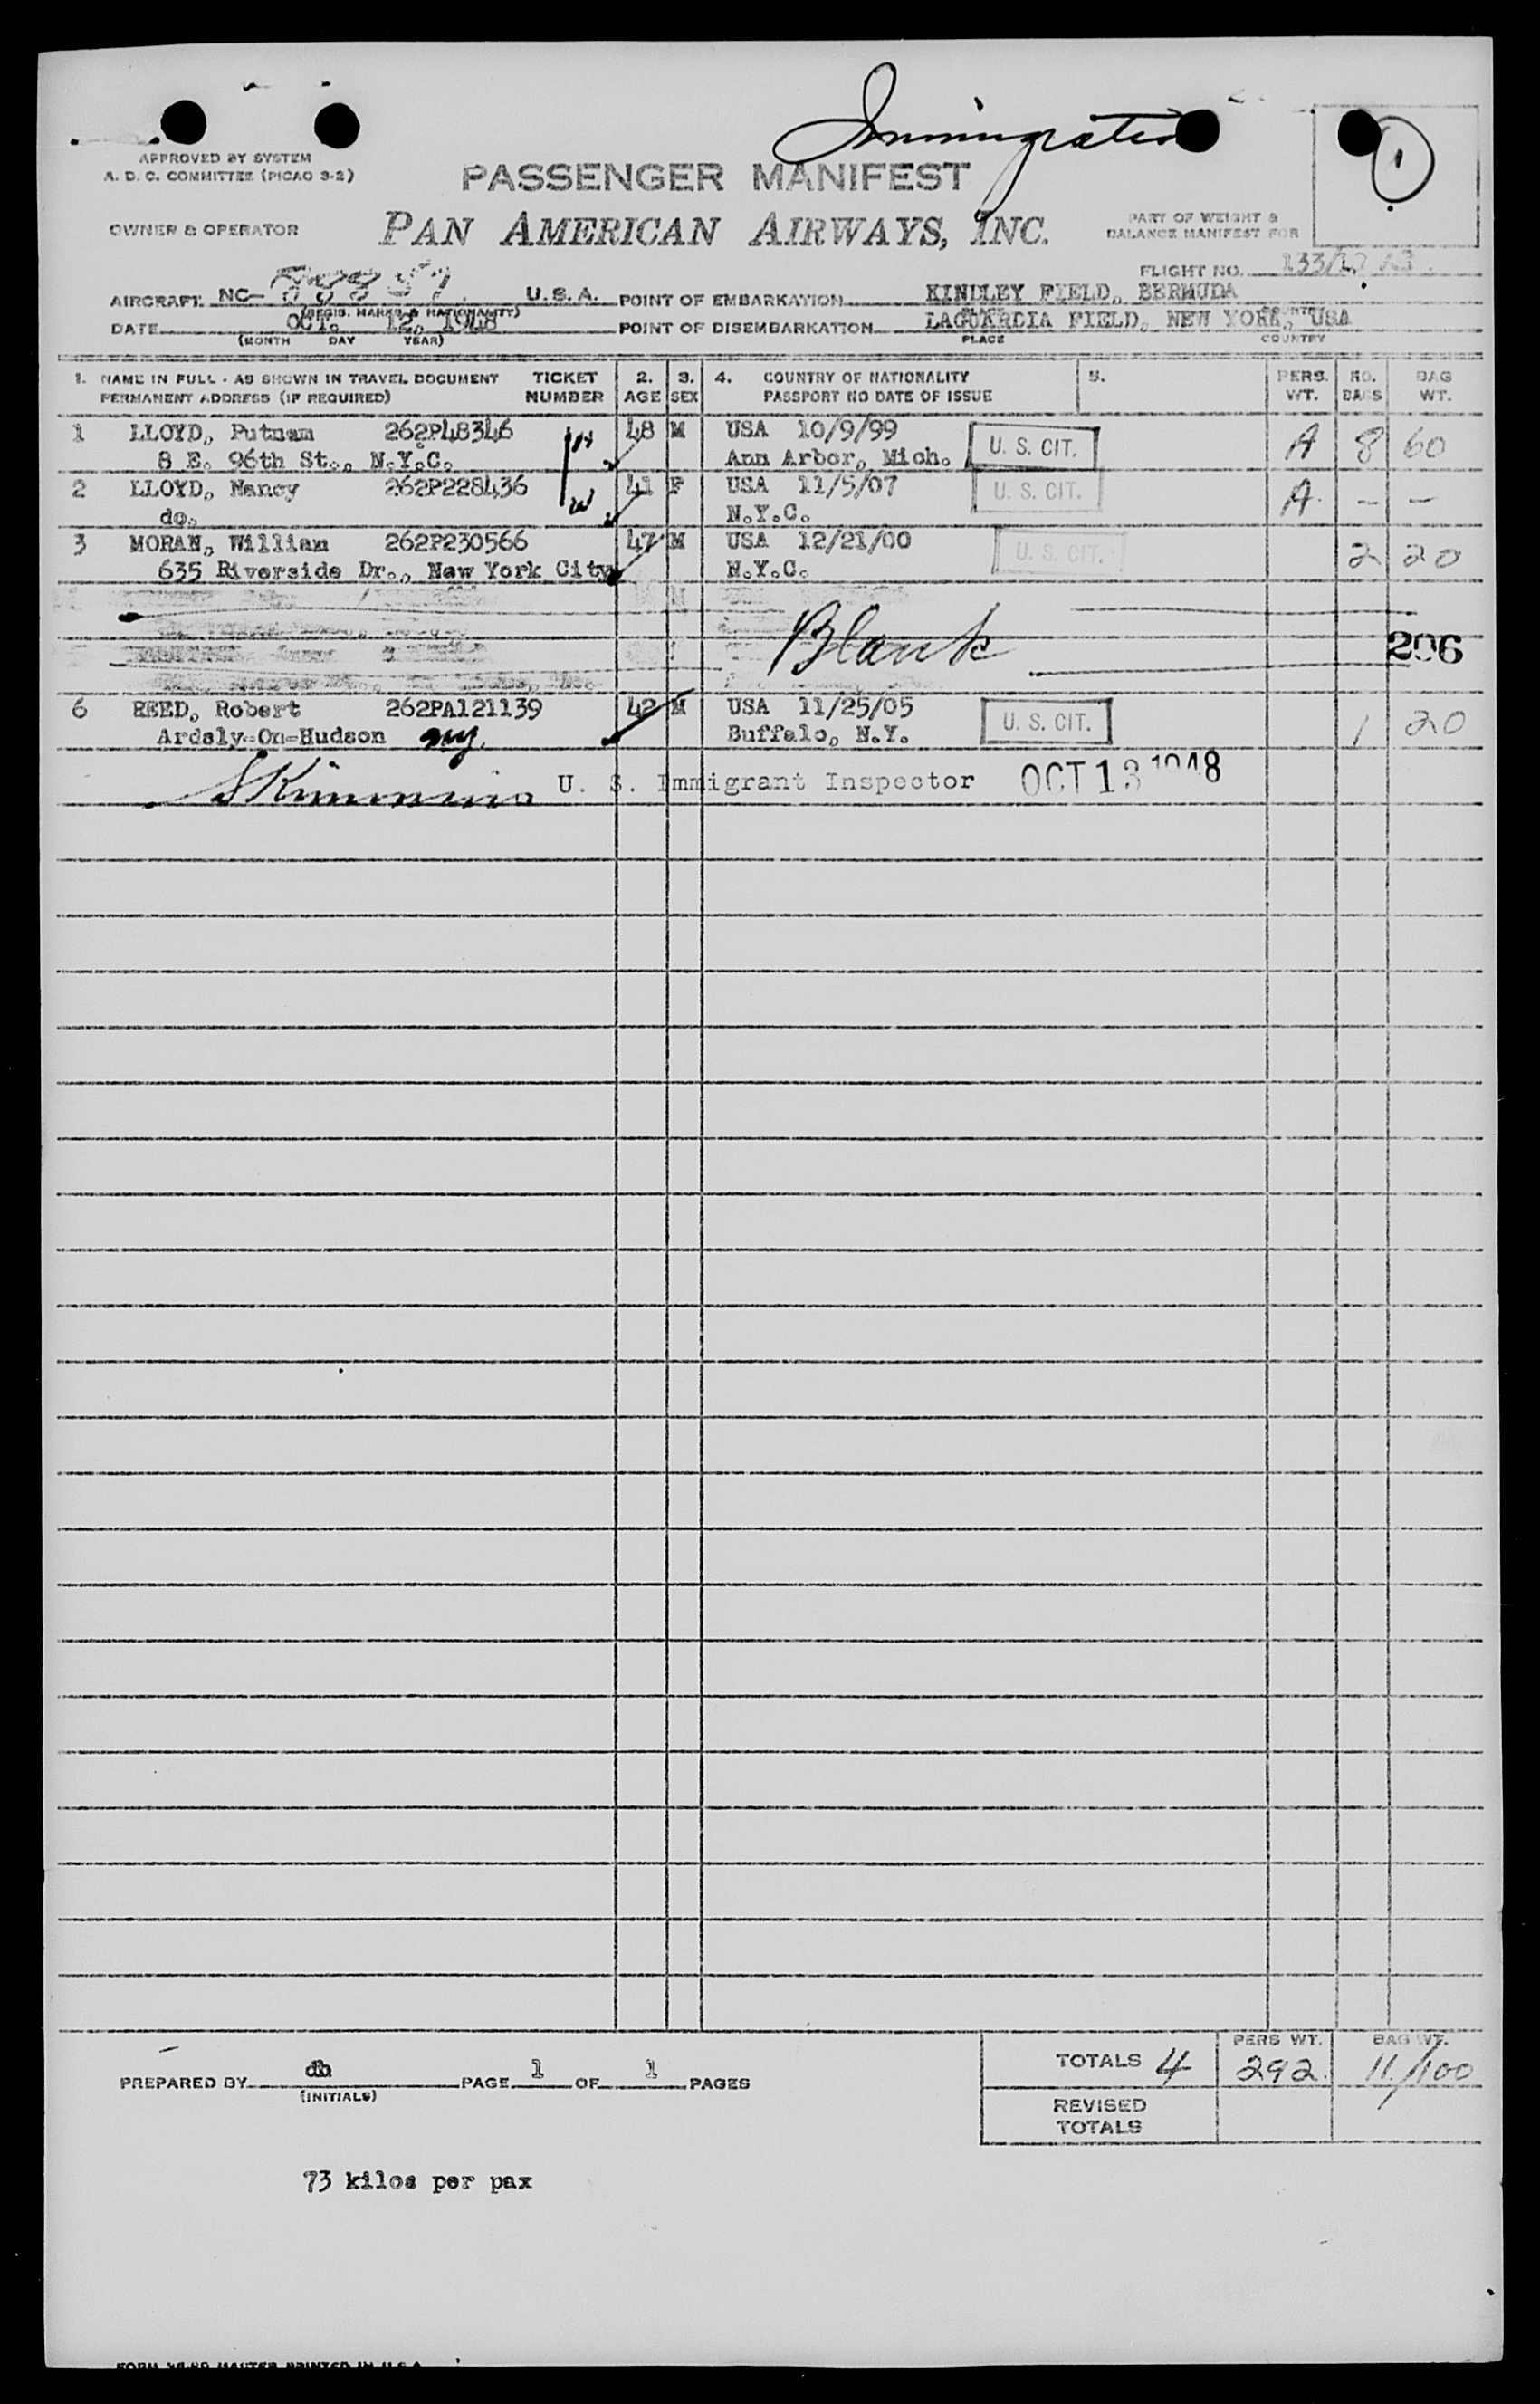 Immigration
1
APPROVED BY SYSTEM
A. D. C. COMMITTEE (PICAO S-2)
PASSENGER MANIFEST
OWNER & OPERATOR
PAN AMERICAN AIRWAYS, INC.
PART OF WEIGHT &
BALANCE MANIFEST FOR
FLIGHT NO. 133/12
AIRCRAFT NC- U.S.A. POINT OF EMBARKATION KINDLEY FIELD, BERMUDA
(REGIS. MARKS & NATIONALITY)
DATE OCT. 12, 1948 POINT OF DISEMBARKATION LAGUARDIA FIELD, NEW YORK, USA
(MONTH DAY YEAR) PLACE COUNTRY
1. NAME IN FULL - AS SHOWN IN TRAVEL DOCUMENT TICKET 2. 3. 4. COUNTRY OF NATIONALITY 5. PERS. NO. BAG
PERMANENT ADDRESS (IF REQUIRED) NUMBER AGE SEX PASSPORT NO DATE OF ISSUE WT. BAGS WT.
1 LLOYD, Putnam 262P48346 48 M USA 10/9/99 U. S. CIT. A 8 60
8 E. 96th St., N.Y.C. Ann Arbor, Mich.
2 LLOYD, Nancy 262P228436 41 F USA 11/5/07 U. S. CIT. A - -
do. N.Y.C.
3 MORAN, William 262P230566 47 M USA 12/21/00 U. S. CIT. 2 20
635 Riverside Dr., New York City N.Y.C.
Blank
206
6 REED, Robert 262PA121139 42 M USA 11/25/05 U. S. CIT. 1 20
Ardsly-On-Hudson ny. Buffalo, N.Y.
U. S. Immigrant Inspector OCT 13 1948
PERS WT. BAG WT.
TOTALS 4 292 11/100
PREPARED BY db PAGE 1 OF 1 PAGES
(INITIALS)
REVISED
TOTALS
73 kilos per pax